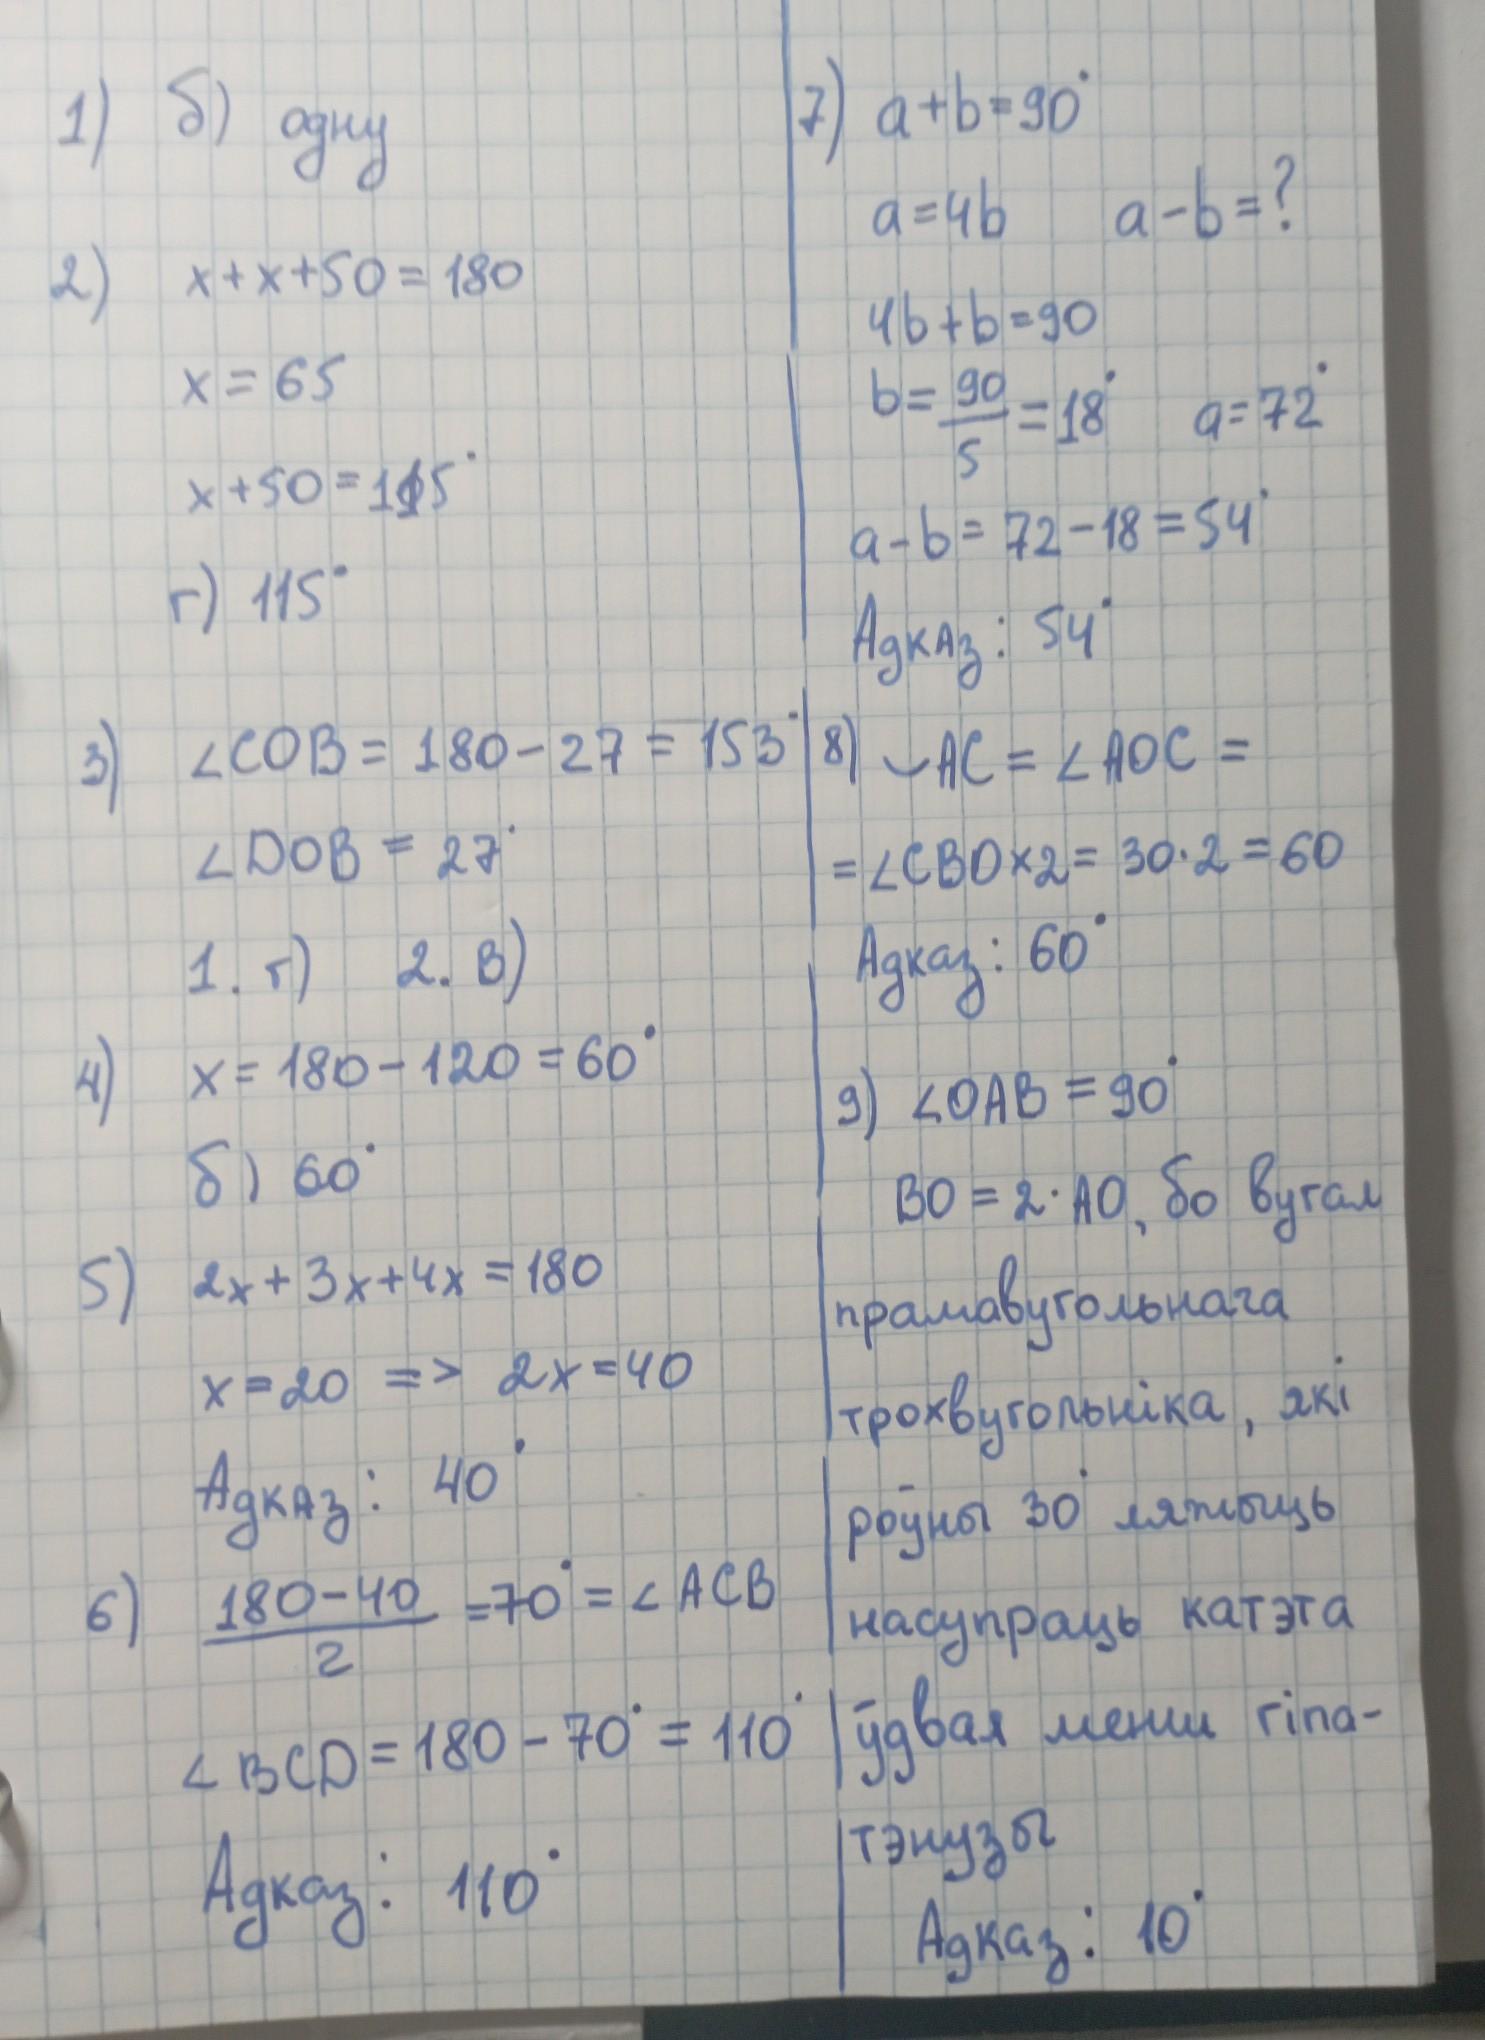 1) б) одну
2) x+x+50=180
x=65
x+50=115°
г) 115°
3) ∠COB = 180-27 = 153°
∠DOB = 27°
1. г) 2. в)
4) x=180-120=60°
б) 60°
5) 2x+3x+4x=180
x=20 => 2x=40
Адказ: 40°
6) (180-40)/2 =70°=∠ACB
∠BCD=180-70°=110°
Адказ: 110°
7) a+b=90°
a=4b a-b=?
4b+b=90
b=90/5=18° a=72°
a-b=72-18=54°
Адказ: 54°
8) ◡AC = ∠AOC =
=∠CBO×2= 30·2=60
Адказ: 60°
9) ∠OAB = 90°
BO = 2·AO, бо вугал
прамавугольнага
трохвугольніка, які
роўны 30° ляжыць
насупраць катэта
ўдвая менш гіпа-
тэнузы
Адказ: 10°